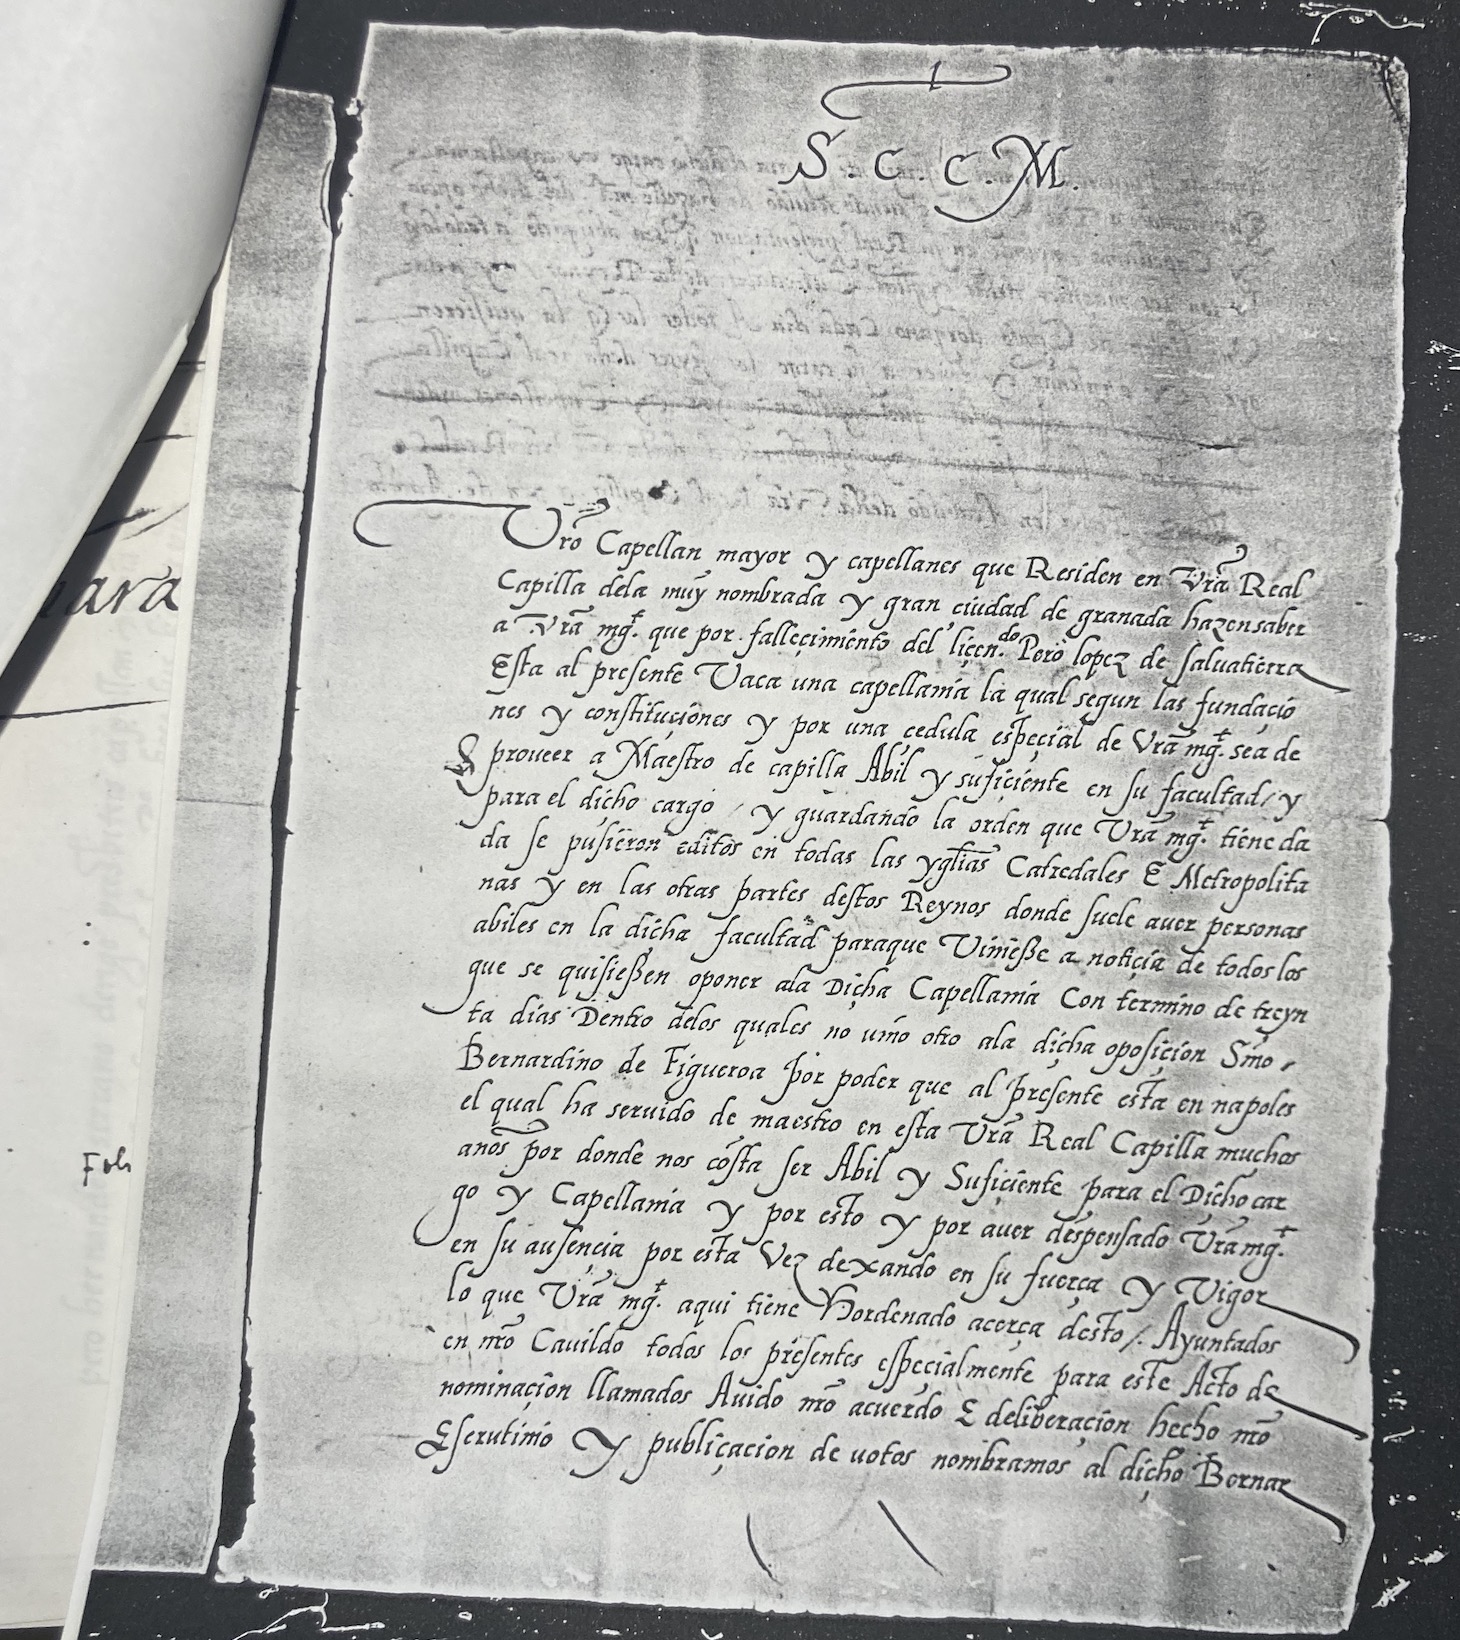 S. C. C. M.
Vrõ Capellan mayor y capellanes que Residen en Vrã Real
Capilla dela muy nombrada y gran çiudad de granada hazen saber
a Vrã mg.t que por falleçimiento del liçen.do Pero lopez de salvatierra
Esta al presente Vaca una capellania la qual segun las fundaçio
nes y constituçiones y por una çedula espeçial de Vrã mg.t sea de
proueer a Maestro de capilla Abil y sufiçiente en su facultad / y
para el dicho cargo / y guardando la orden que Vrã mg.t tiene da
da se pusieron editos en todas las ygliãs Catredales E Metropolita
nas y en las otras partes destos Reynos donde suele auer personas
abiles en la dicha facultad paraque Viniesse a notiçia de todos los
que se quisiessen oponer ala Dicha Capellania Con termino de treyn
ta dias Dentro delos quales no uino otro ala dicha oposiçion Sino
Bernardino de Figueroa por poder que al presente esta en napoles
el qual ha seruido de maestro en esta Vrã Real Capilla muchos
años por donde nos cõsta ser Abil y Sufiçiente para el Dicho car
go y Capellania y por esto y por auer despensado Vrã mg.t
en su ausençia por esta Vez dexando en su fuerça y Vigor
lo que Vrã mg.t aqui tiene Hordenado açerca desto /. Ayuntados
en nrõ Cauildo todos los presentes espeçialmente para este Acto de
nominaçion llamados Auido nrõ acuerdo E deliberaçion hecho nrõ
Escrutinio y publicaçion de uotos nombramos al dicho Bernar
ara
Foli